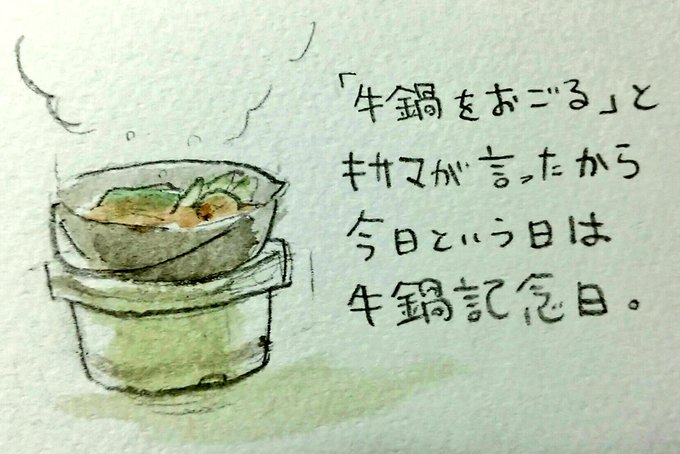 「牛鍋をおごる」と
キサマが言ったから
今日という日は
牛鍋記念日。